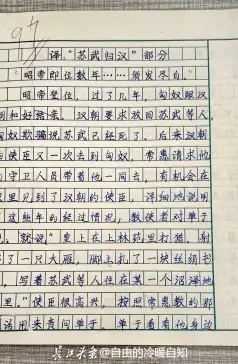 97
译“苏武归汉”部分
“昭帝即位数年……须发尽白。”
昭帝登位，过了几年，匈奴跟汉
朝和好结亲。汉朝要求放回苏武等人，
匈奴欺骗说苏武已经死了，后来汉朝
的使臣又一次去到匈奴，常惠请求他
的守卫人员带着他一同去，有机会在
夜里见到了汉朝的使臣，详细地说明
了这些年的经过情况，教使者对单于
说，就说“皇上在上林苑里打猎，射
了一只大雁，脚上扎了一块丝绢书
，写着苏武等人住在某一个沼泽地
里。”使臣很高兴，按照常惠教的那
话用来责问单于，单于看看他身边
长江大学@自由的冷暖自知